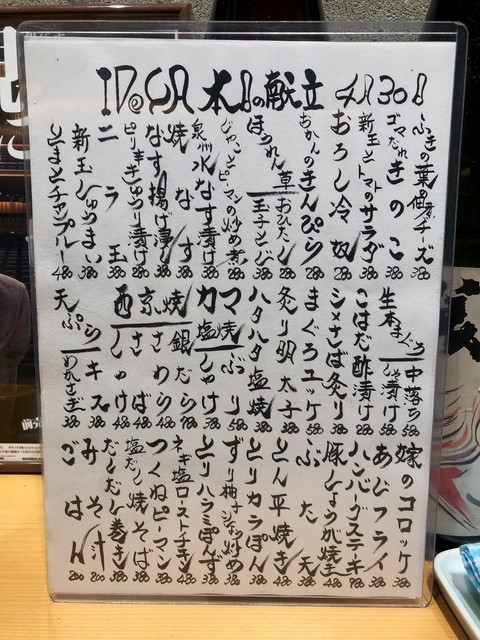 本日の献立 4月30日
ふきの葉の佃煮チーズ 380
ゴマだれきのこ 380
新玉とトマトのサラダ 380
おろし冷奴 280
おかんのきんぴら 280
ほうれん草 おひたし 280
玉子とじ 380
じゃことピーマンの炒め煮 280
泉州水なす漬け 380
焼なす 380
なす揚げ浸し 380
ピリ辛きゅうり漬け 280
ニラ玉 380
新玉しゅうまい 380
とまとチャンプルー 480
生本まぐろ 中落ち 580
しょうゆ漬け 580
こはだ酢漬け 280
シメさば炙り 380
まぐろユッケ 580
炙り明太子 380
ハタハタ塩焼 380
カマ塩焼 ぶり 580
しゃけ 380
西京焼 銀だら 980
さわら 480
さば 480
しゃけ 480
天ぷら キス 380
わかさぎ 380
嫁のコロッケ 380
あじフライ 380
ハンバーグステーキ 980
豚しょうが焼き 480
ぶた天 380
とん平焼き 480
とりカラぽん 380
ずり柚子こしょう炒め 380
とりハラミぽんず 380
ネギ塩ローストチキン 480
つくねピーマン 380
塩だし焼そば 380
だしだし巻き 380
みそ汁 200
ごはん 200